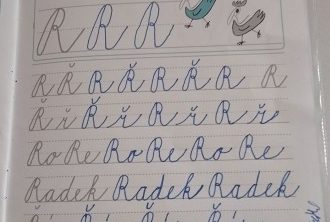 R R R
R Ř R Ř R Ř R R
Ř ř Ř ř Ř ř R ř Ř ř
Ro Re Ro Re Ro Re
Radek Radek Radek